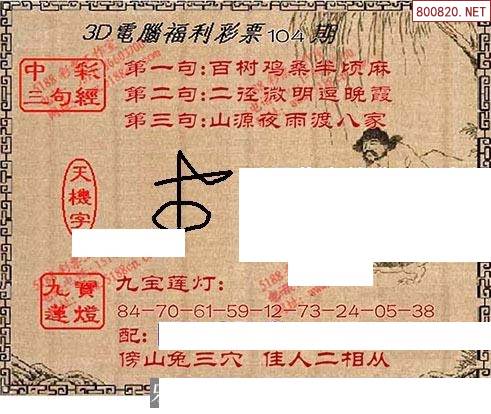 800820.NET
3D電腦福利彩票104期
中彩
三句經
第一句:百树鸡桑半顷麻
第二句:二径微明逗晚霞
第三句:山源夜雨渡八家
天機字
九寶
蓮燈
九宝莲灯:
84-70-61-59-12-73-24-05-38
配:
傍山兔三穴 佳人二相从